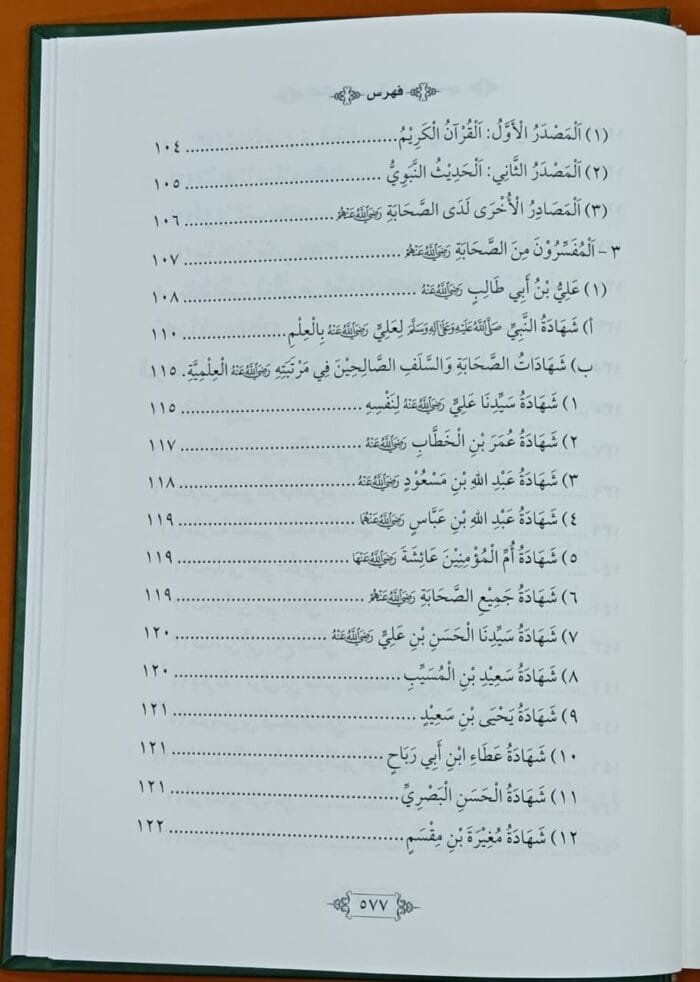 فهرس
(١) اَلْمَصْدَرُ الْأَوَّلُ: اَلْقُرْآنُ الْكَرِيْمُ ........ ١٠٤
(٢) اَلْمَصْدَرُ الثَّانِي: اَلْحَدِيْثُ النَّبَوِيُّ ........ ١٠٥
(٣) اَلْمَصَادِرُ الْأُخْرَى لَدَى الصَّحَابَةِ رَضِيَ اللهُ عَنْهُمْ ........ ١٠٦
٣ - اَلْمُفَسِّرُوْنَ مِنَ الصَّحَابَةِ رَضِيَ اللهُ عَنْهُمْ ........ ١٠٧
(١) عَلِيُّ بْنُ أَبِي طَالِبٍ رَضِيَ اللهُ عَنْهُ ........ ١٠٨
أ) شَهَادَةُ النَّبِيِّ صَلَّى اللهُ عَلَيْهِ وَعَلَى آلِهِ وَسَلَّمَ لِعَلِيٍّ رَضِيَ اللهُ عَنْهُ بِالْعِلْمِ ........ ١١٠
ب) شَهَادَاتُ الصَّحَابَةِ وَالسَّلَفِ الصَّالِحِيْنَ فِي مَرْتَبَتِهِ رَضِيَ اللهُ عَنْهُ الْعِلْمِيَّةِ. ١١٥
١) شَهَادَةُ سَيِّدِنَا عَلِيٍّ رَضِيَ اللهُ عَنْهُ لِنَفْسِهِ ........ ١١٥
٢) شَهَادَةُ عُمَرَ بْنِ الْخَطَّابِ رَضِيَ اللهُ عَنْهُ ........ ١١٧
٣) شَهَادَةُ عَبْدِ اللهِ بْنِ مَسْعُوْدٍ رَضِيَ اللهُ عَنْهُ ........ ١١٨
٤) شَهَادَةُ عَبْدِ اللهِ بْنِ عَبَّاسٍ رَضِيَ اللهُ عَنْهُمَا ........ ١١٩
٥) شَهَادَةُ أُمِّ الْمُؤْمِنِيْنَ عَائِشَةَ رَضِيَ اللهُ عَنْهَا ........ ١١٩
٦) شَهَادَةُ جَمِيْعِ الصَّحَابَةِ رَضِيَ اللهُ عَنْهُمْ ........ ١١٩
٧) شَهَادَةُ سَيِّدِنَا الْحَسَنِ بْنِ عَلِيٍّ رَضِيَ اللهُ عَنْهُ ........ ١٢٠
٨) شَهَادَةُ سَعِيْدِ بْنِ الْمُسَيِّبِ ........ ١٢٠
٩) شَهَادَةُ يَحْيَى بْنِ سَعِيْدٍ ........ ١٢١
١٠) شَهَادَةُ عَطَاءِ ابْنِ أَبِي رَبَاحٍ ........ ١٢١
١١) شَهَادَةُ الْحَسَنِ الْبَصْرِيِّ ........ ١٢١
١٢) شَهَادَةُ مُغِيْرَةَ بْنِ مِقْسَمٍ ........ ١٢٢
٥٧٧